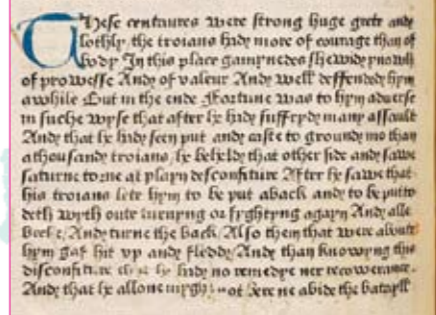 These centaures were strong huge grete and
lothly, the troians had more of courage than of
body In this place ganymedes shewid
of prowesse And of valeur And well deffended hym
a while But in the ende Fortune was to hym aduerse
in suche wyse that after he had suffryd many assault
And that he had seen put and caste to ground mo than
a thousand troians, he beheld that other side and sawe
saturne torne at playn desconfiture After he sawe that
his troians lete hym to be put aback and to be putto
deth wyth oute turnyng or fyghtyng agayn And alle
And turne the back, Also them that were aboute
hym gaf hit vp and fledd, And than knowyng this
disconfiture he had no remedye ner recouerance.
And that he allone not ne abide the bataylle